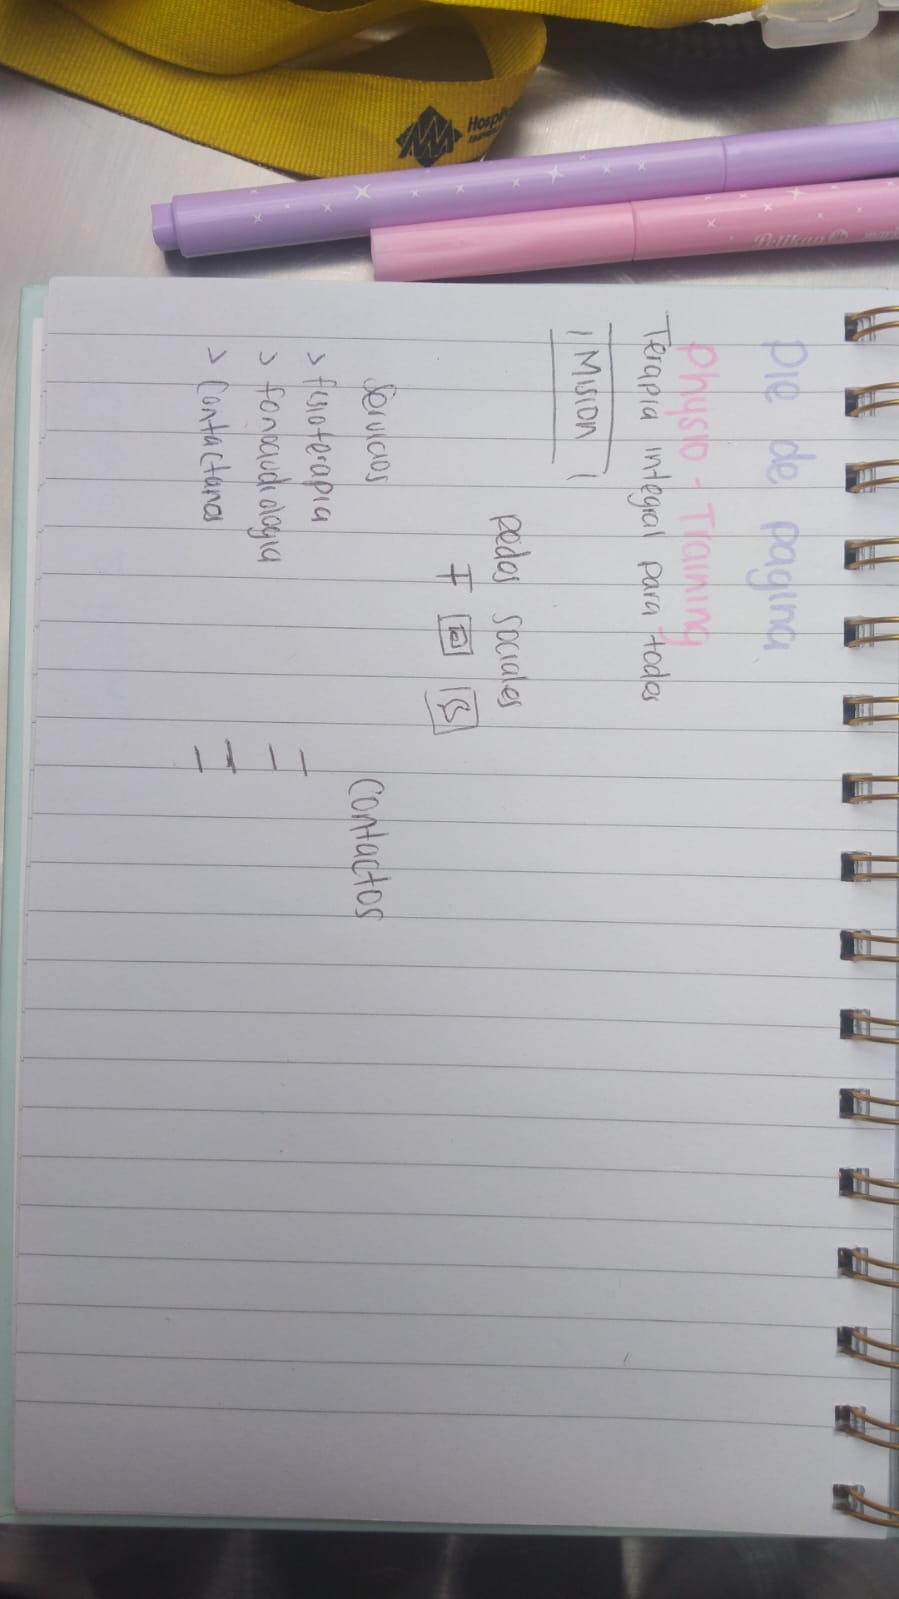 Pie de pagina
Physio - Training
Terapia integral para todos
Mision
Redes sociales
F
Servicios
> fisioterapia
> fonoaudiologia
> Contactanos
Contactos
-
-
-
-
Pelikan
Hospi